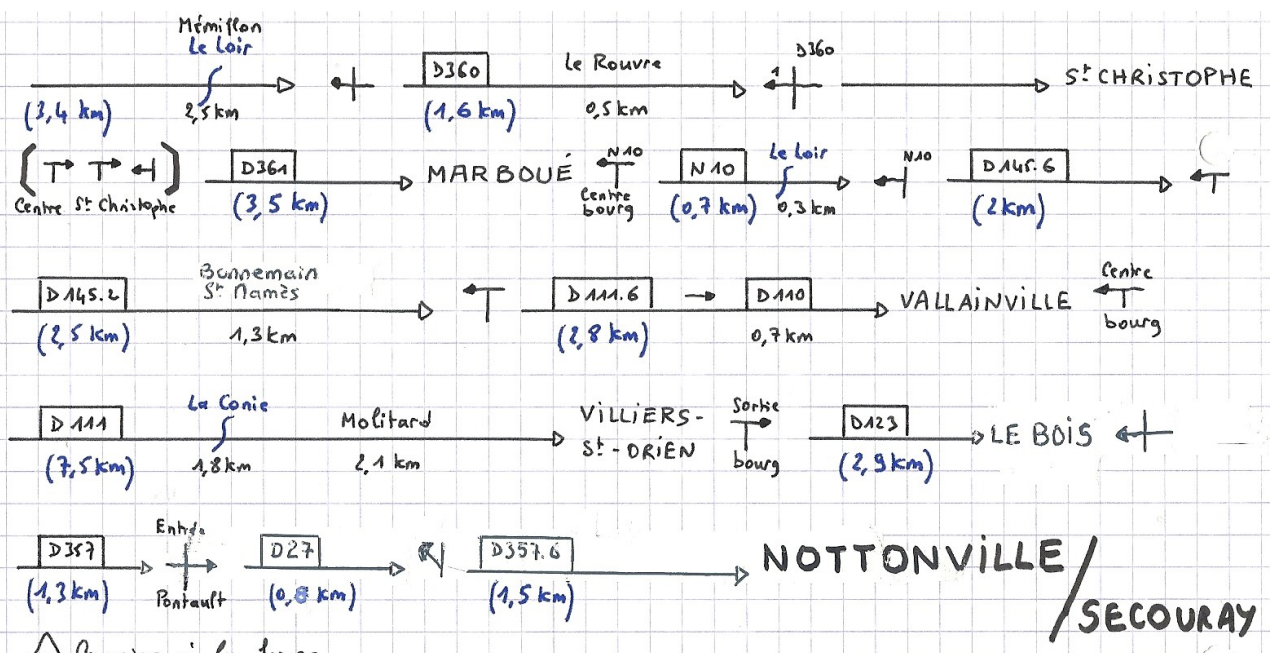 Mémillon
Le Loir
(3,4 km) 2,5km
D360 Le Rouvre
(1,6 km) 0,5km
D360
1
St CHRISTOPHE
Centre St Christophe
D361
(3,5 km)
MARBOUÉ
N10
Centre
bourg
N10 Le Loir
(0,7 km) 0,3km
N10
D145.6
(2km)
D145.2 Bonnemain
St Mamès
(2,5 km) 1,3km
D111.6 → D110
(2,8 km) 0,7km
VALLAINVILLE
Centre
bourg
D111 La Conie Molitard
(7,5km) 1,8km 2,1 km
VILLIERS-
St-ORIEN
Sortie
bourg
D123
(2,9km)
LE BOIS
D357
(1,3km)
Entrée
Pontault
D27
(0,8 km)
D357.6
(1,5 km)
NOTTONVILLE/
SECOURAY